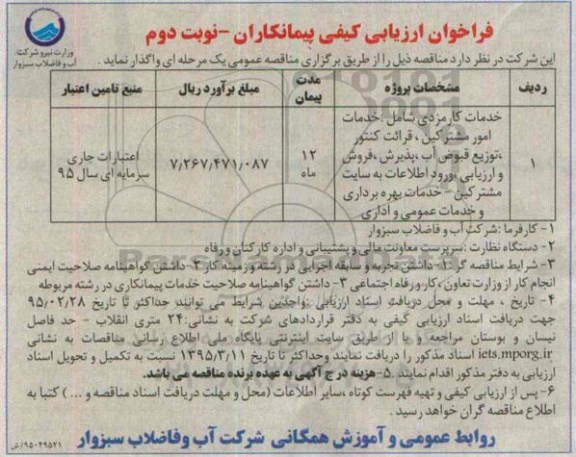 وزارت نیرو شرکت
آب و فاضلاب سبزوار
فراخوان ارزیابی کیفی پیمانکاران -نوبت دوم
این شرکت در نظر دارد مناقصه ذیل را از طریق برگزاری مناقصه عمومی یک مرحله ای واگذار نماید.
ردیف
مشخصات پروژه
مدت پیمان
مبلغ برآورد ریال
منبع تامین اعتبار
۱
خدمات کارمزدی شامل :خدمات
امور مشترکین ، قرائت کنتور
،توزیع قبوض آب ،پذیرش ،فروش
و ارزیابی ،ورود اطلاعات به سایت
مشترکین - خدمات بهره برداری
و خدمات عمومی و اداری
۱۲
ماه
۷٫۲۶۷٫۴۷۱٫۰۸۷
اعتبارات جاری
سرمایه ای سال ۹۵
۱- کارفرما :شرکت آب و فاضلاب سبزوار
۲- دستگاه نظارت :سرپرست معاونت مالی و پشتیبانی و اداره کارکنان و رفاه
۳- شرایط مناقصه گر :۱- داشتن تجربه و سابقه اجرایی در رشته و زمینه کار ۲- داشتن گواهینامه صلاحیت ایمنی
انجام کار از وزارت تعاون ،کار و رفاه اجتماعی ۳- داشتن گواهینامه صلاحیت خدمات پیمانکاری در رشته مربوطه
۴- تاریخ ، مهلت و محل دریافت اسناد ارزیابی :واجدین شرایط می توانند حداکثر تا تاریخ ۹۵/۰۲/۲۸
جهت دریافت اسناد ارزیابی کیفی به دفتر قراردادهای شرکت به نشانی:۲۴ متری انقلاب - حد فاصل
نیسان و بوستان مراجعه و یا از طریق سایت اینترنتی پایگاه ملی اطلاع رسانی مناقصات به نشانی
iets.mporg.ir اسناد مذکور را دریافت نمایند وحداکثر تا تاریخ ۱۳۹۵/۳/۱۱ نسبت به تکمیل و تحویل اسناد
ارزیابی به دفتر مذکور اقدام نمایند. ۵-هزینه درج آگهی به عهده برنده مناقصه می باشد.
۶- پس از ارزیابی کیفی و تهیه فهرست کوتاه ،سایر اطلاعات (محل و مهلت دریافت اسناد مناقصه و ... ) کتبا به
اطلاع مناقصه گران خواهد رسید.
روابط عمومی و آموزش همگانی شرکت آب وفاضلاب سبزوار
۹۵۰۴۹۵۲۱/ش